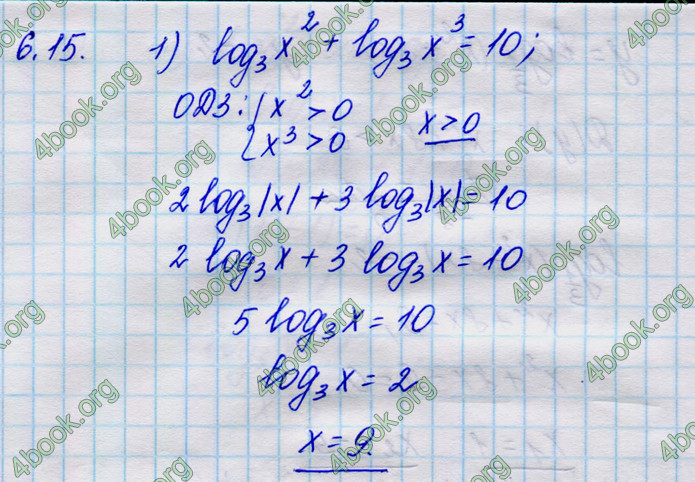 6.15. 1) log₃x² + log₃x³ = 10;
ОДЗ: { x² > 0
x³ > 0 x > 0
2 log₃|x| + 3 log₃|x| = 10
2 log₃x + 3 log₃x = 10
5 log₃x = 10
log₃x = 2
x = 9.
4book.org
4book.org
4book.org
4book.org
4book.org
4book.org
4book.org
4book.org
4book.org
4book.org
4book.org
4book.org
4book.org